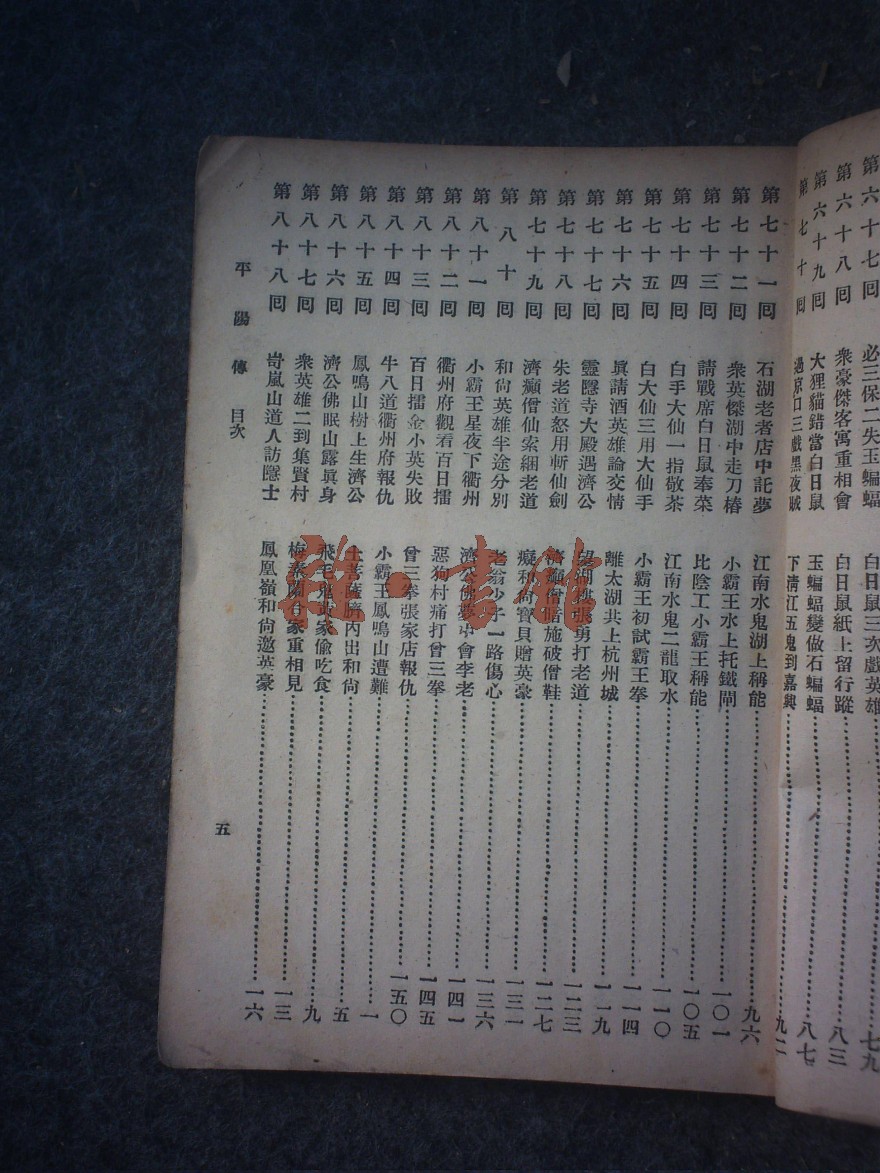 第六十七囘 必三保二失玉蝙蝠 白日鼠三次戲英雄……七九
第六十八囘 衆豪傑客寓重相會 白日鼠紙上留行蹤……八三
第六十九囘 大狸貓錯當白日鼠 玉蝙蝠變做石蝙蝠……八七
第七十囘 過京口三戲黑夜賊 下淸江五鬼到嘉興……九二
第七十一囘 石湖老者店中託夢 江南水鬼湖上稱能……九六
第七十二囘 衆英傑湖中走刀樁 小霸王水上托鐵閘……一〇一
第七十三囘 請戰席白日鼠奉菜 比陰工小霸王稱能……一〇五
第七十四囘 白手大仙一指敬茶 江南水鬼二龍取水……一一〇
第七十五囘 白大仙三用大仙手 小霸王初試霸王拳……一一四
第七十六囘 眞請酒英雄論交情 離太湖共上杭州城……一一九
第七十七囘 靈隱寺大殿遇濟公 望湖樓張勇打老道……一二三
第七十八囘 朱老道怒用斬仙劍 濟顚僧暗施破僧鞋……一二七
第七十九囘 濟癲僧仙索綑老道 癡和尙寶貝贈英豪……一三一
第八十囘 和尙英雄半途分別 老翁少子一路傷心……一三六
第八十一囘 小霸王星夜下衢州 濟公佛夢中會李老……一四一
第八十二囘 衢州府觀看百日擂 惡狗村痛打曾三拳……一四五
第八十三囘 百日擂金小英失敗 曾三拳張家店報仇……一五〇
第八十四囘 牛八道衢州府報仇 小霸王鳳鳴山遭難……一
第八十五囘 鳳鳴山樹上生濟公 土菩薩臍內出和尙……五
第八十六囘 濟公佛眠山露眞身 飛毛鬼 家偷吃食……九
第八十七囘 衆英雄二到集賢村 梅素蘭合家重相見……一三
第八十八囘 岢嵐山道人訪隱士 鳳凰嶺和尙邀英豪……一六
平陽傳 目次
五